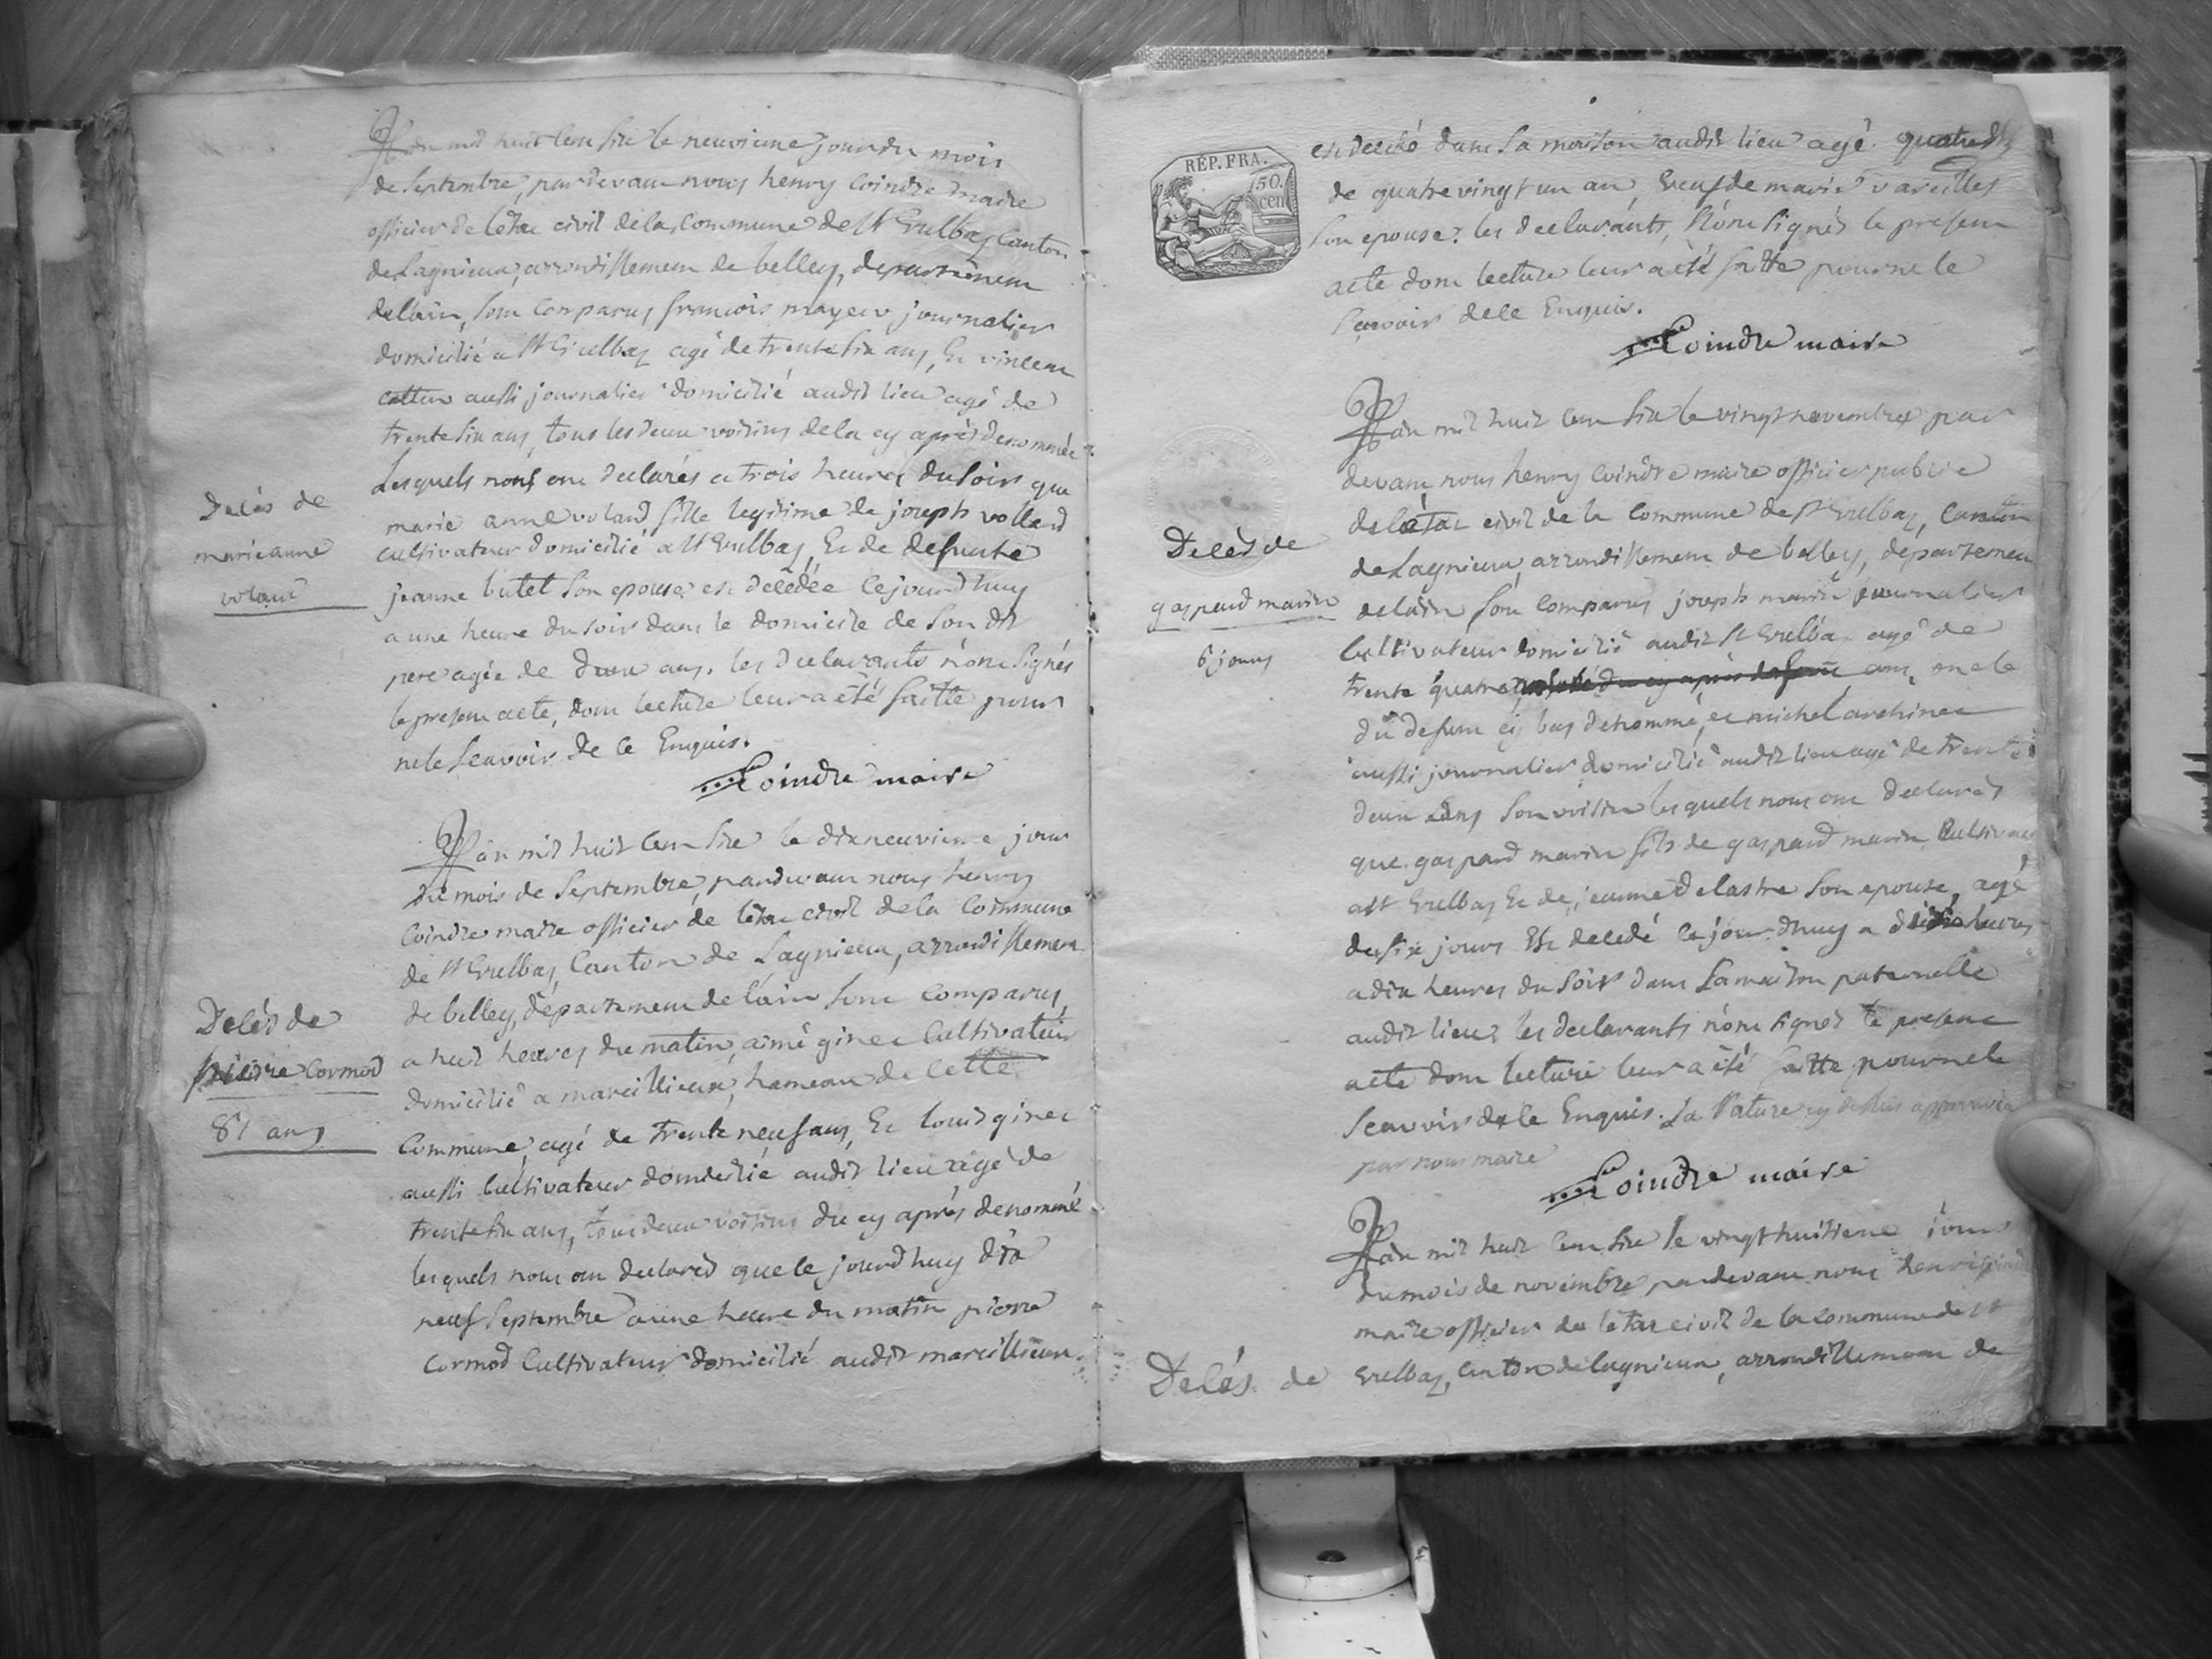 L'an mil huit cen six le neuvieme jour du mois
de Septembre, pardevam nous henry Coindre maire
officier de l'état civil de la Commune de St Vulbas Canton
de Lagnieux, arrondissement de belley, departement
de lain, som comparus francois mayeur journalier
domicilié a St Vulbas agé de trente six ans, Et vincent
aussi journalier domicilié audit lieu agé de
trente six ans, tous les deux voisins de la cy après denommée
Lesquels nous om declarés a trois heures du soir que
marie anne voland fille legitime de joseph volland
cultivateur domicilié a St Vulbas, Et de defunte
jeanne butet son epouse est decedée Cejourd'huy
a une heure du soir dans le domicile de son dit
pere agée de deux ans. les declarants n'om signés
le present acte, dom lecture leur a été faitte pour
ne le scavoir de ce Enquis.
Coindre maire
Decés de
marie anne
voland
L'an mil huit Cen six le dix neuvieme jour
du mois de Septembre, pardevam nous henry
Coindre maire officier de l'état civil de la Commune
de St Vulbas, Canton de Lagnieux, arrondissement
de belley, departement de l'ain som comparus,
a huit heures du matin, aimé ginet Cultivateur
domicilié a marcillieux, hameau de Cette
Commune, agé de trente neuf ans, Et louis ginet
aussi Cultivateur domicilié audit lieu agé de
trente six ans, tous deux voisins du cy après denommé
lesquels nous om declarés que le jourd'huy dix
neuf Septembre a une heure du matin pierre
Cormod Cultivateur domicilié audit marcillieux
Decés de
pierre Cormod
81 ans
RÉP. FRA.
50.
cen
est decedé dans sa maison audit lieu agé
de quatre vingt un an, veuf de marie vareilles
son epouse. les declarants, n'om signés le present
acte dom lecture leur a été faitte pour ne le
scavoir de ce Enquis.
Coindre maire
L'an mil huit cen six le vingt novembre par
devam nous henry Coindre maire officier public
de l'état civil de la Commune de St Vulbas, Canton
de Lagnieux, arrondissement de belley, departement
de l'ain som Comparus joseph marin journalier
Cultivateur domicilié audit St Vulbas agé de
trente quatre ans oncle
du defunt cy bas denommé, et michel
aussi journalier domicilié audit lieu agé de trente
deux ans son voisin lesquels nous om declarés
que gaspard marin fils de gaspard marin Cultivateur
a St Vulbas Et de jeanne Delastre son epouse, agé
de six jours Est decedé ce jour d'huy a
a dix heures du soir dans la maison paternelle
audit lieu. les declarants n'om signés le present
acte dom lecture leur a été faitte pour ne le
scavoir de ce Enquis. La rature cy dessus approuvée
par nous maire
Coindre maire
Decés de
gaspard marin
6 jours
L'an mil huit Cen six le vingt huitieme jour
du mois de novembre pardevam nous henri
maire officier de l'état civil de la Commune de St
Vulbas, Canton de Lagnieux, arrondissement de
Decés de